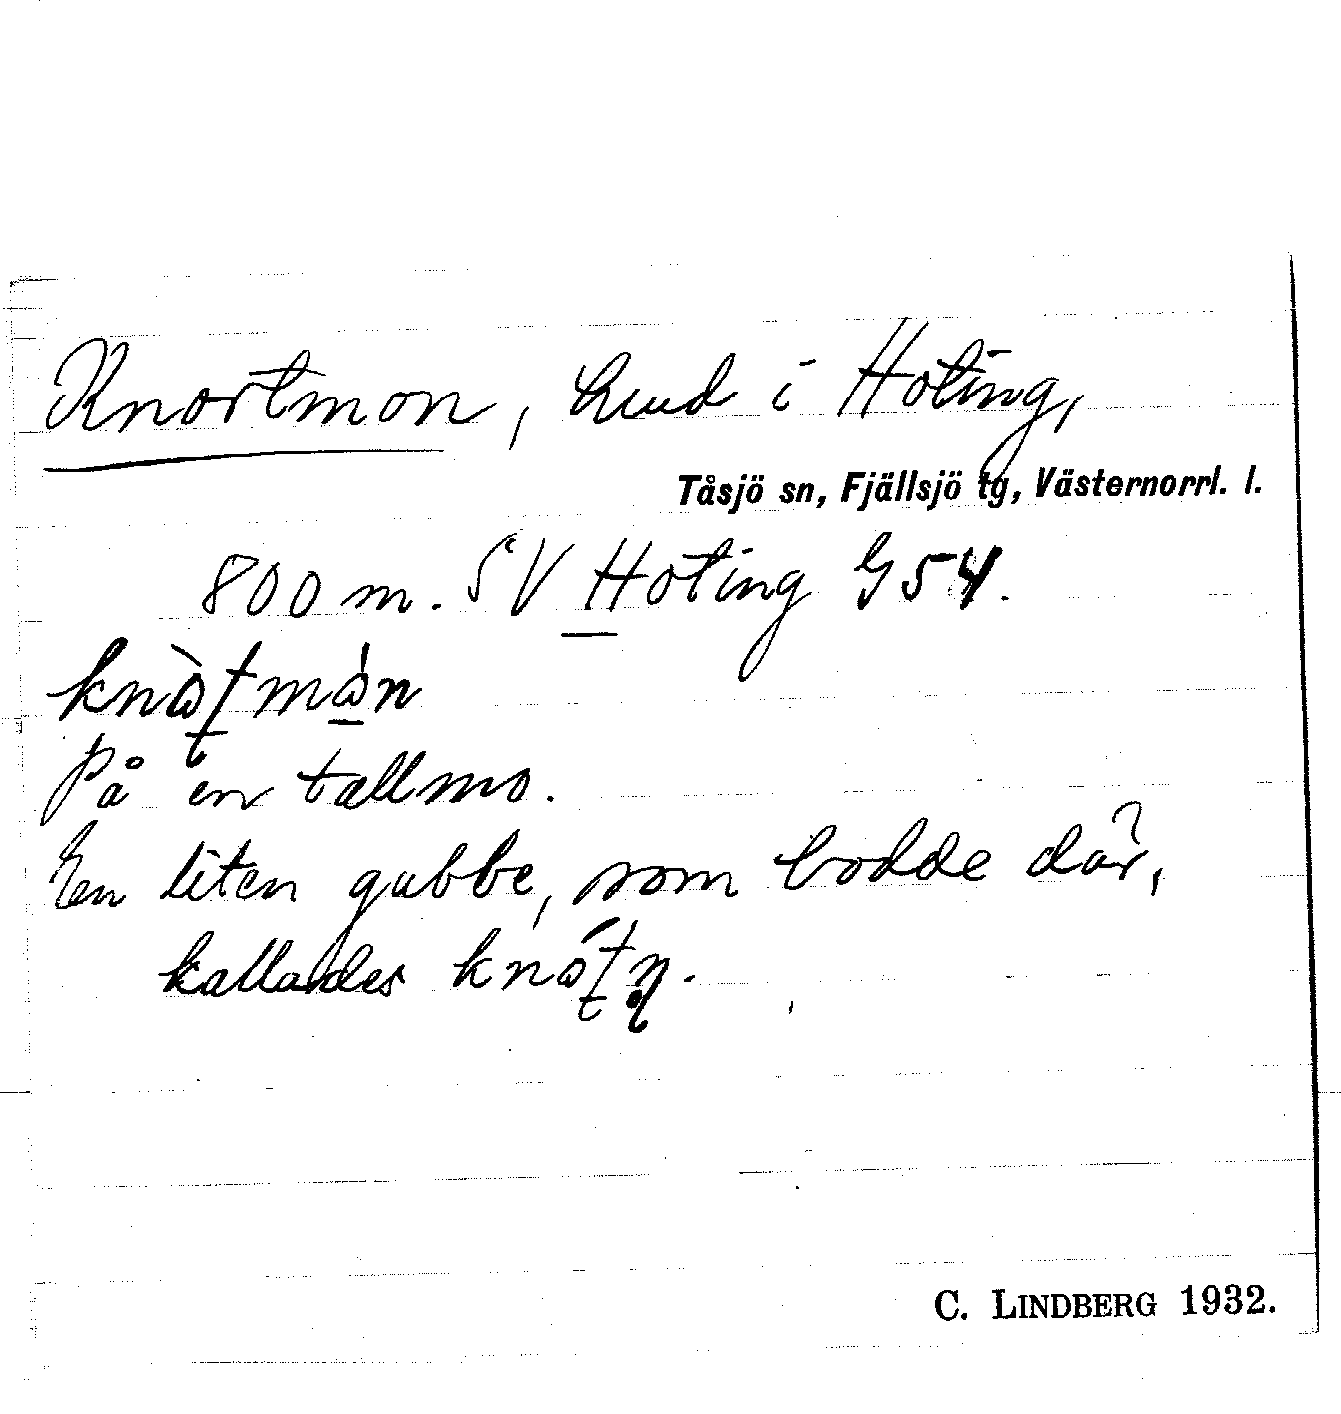 Knortmon, hud i Hoting,
Tåsjö sn, Fjällsjö tg, Västernorrl. l.
800 m. SV Hoting G54.
På en tallmo.
En liten gubbe, som bodde där,
kallades
C. LINDBERG 1932.